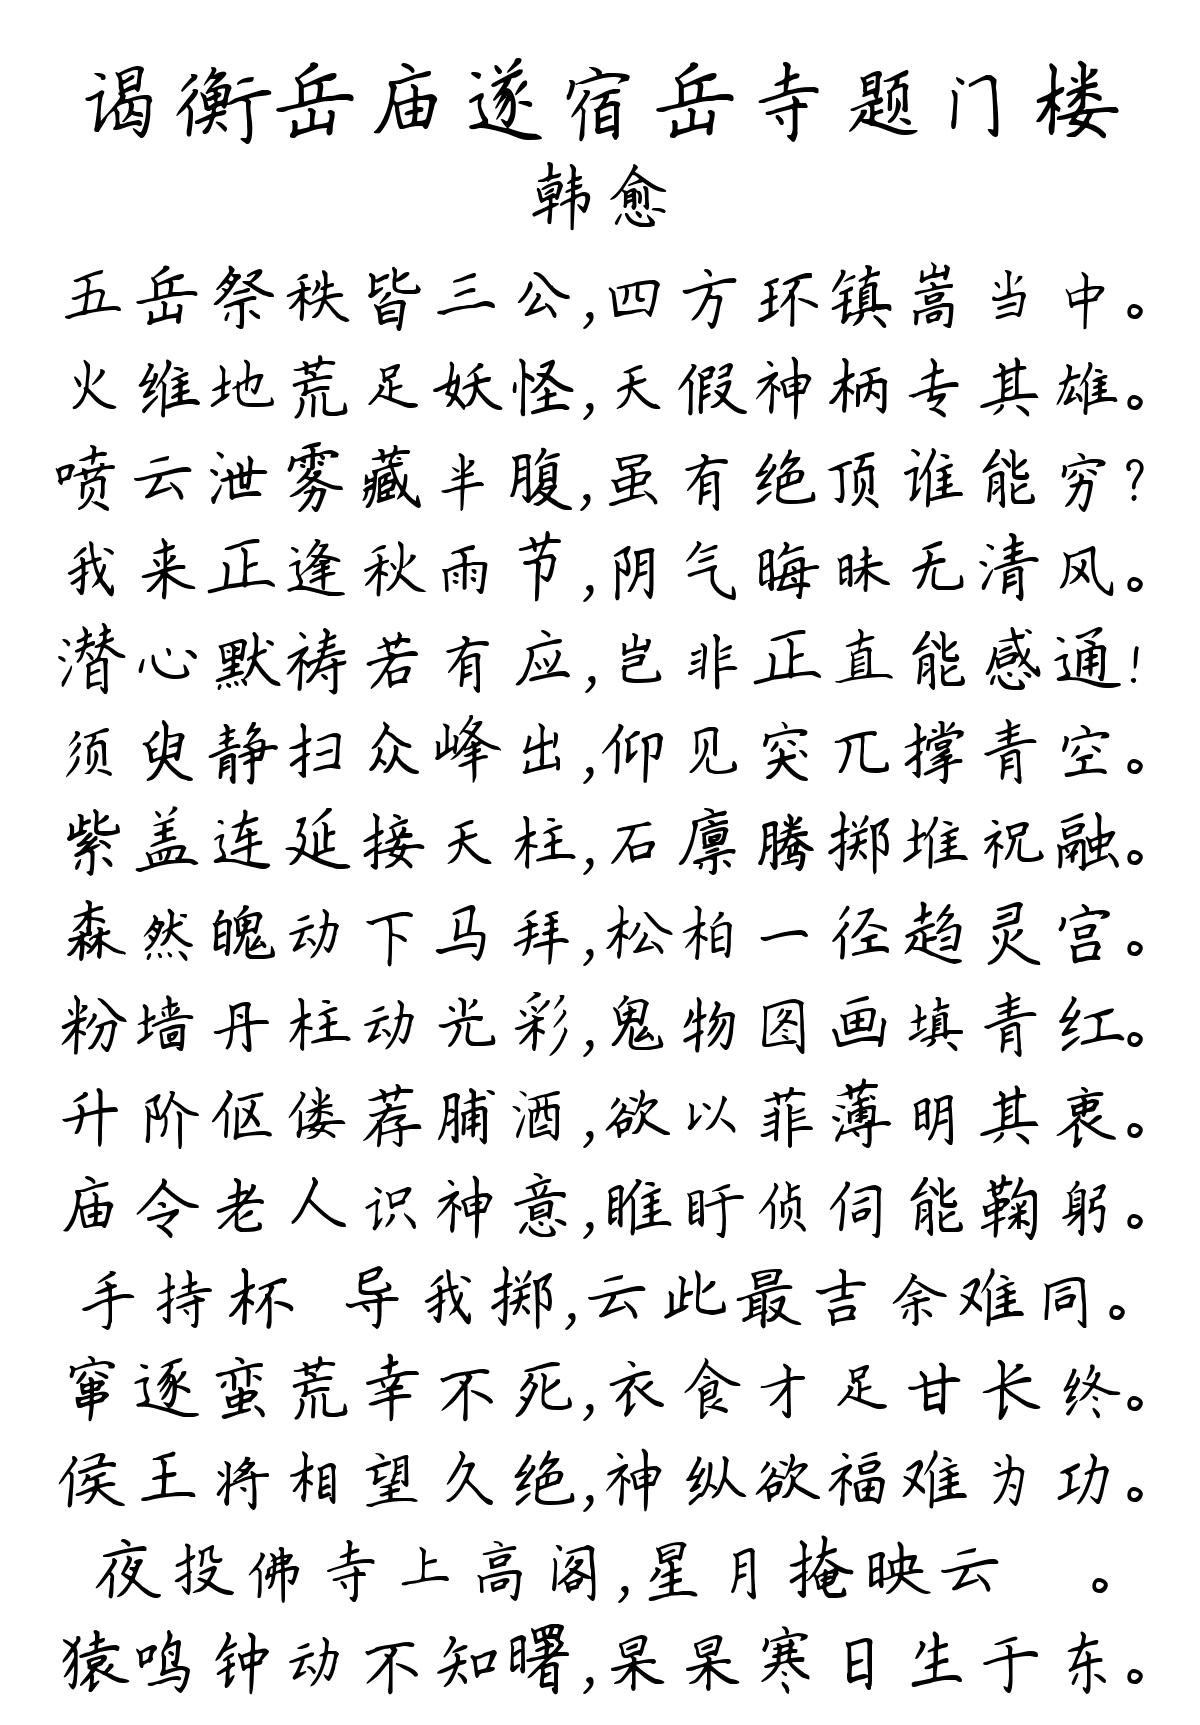 谒衡岳庙遂宿岳寺题门楼
韩愈
五岳祭秩皆三公,四方环镇嵩当中。
火维地荒足妖怪,天假神柄专其雄。
喷云泄雾藏半腹,虽有绝顶谁能穷?
我来正逢秋雨节,阴气晦昧无清风。
潜心默祷若有应,岂非正直能感通!
须臾静扫众峰出,仰见突兀撑青空。
紫盖连延接天柱,石廪腾掷堆祝融。
森然魄动下马拜,松柏一径趋灵宫。
粉墙丹柱动光彩,鬼物图画填青红。
升阶伛偻荐脯酒,欲以菲薄明其衷。
庙令老人识神意,睢盱侦伺能鞠躬。
手持杯 导我掷,云此最吉余难同。
窜逐蛮荒幸不死,衣食才足甘长终。
侯王将相望久绝,神纵欲福难为功。
夜投佛寺上高阁,星月掩映云 。
猿鸣钟动不知曙,杲杲寒日生于东。